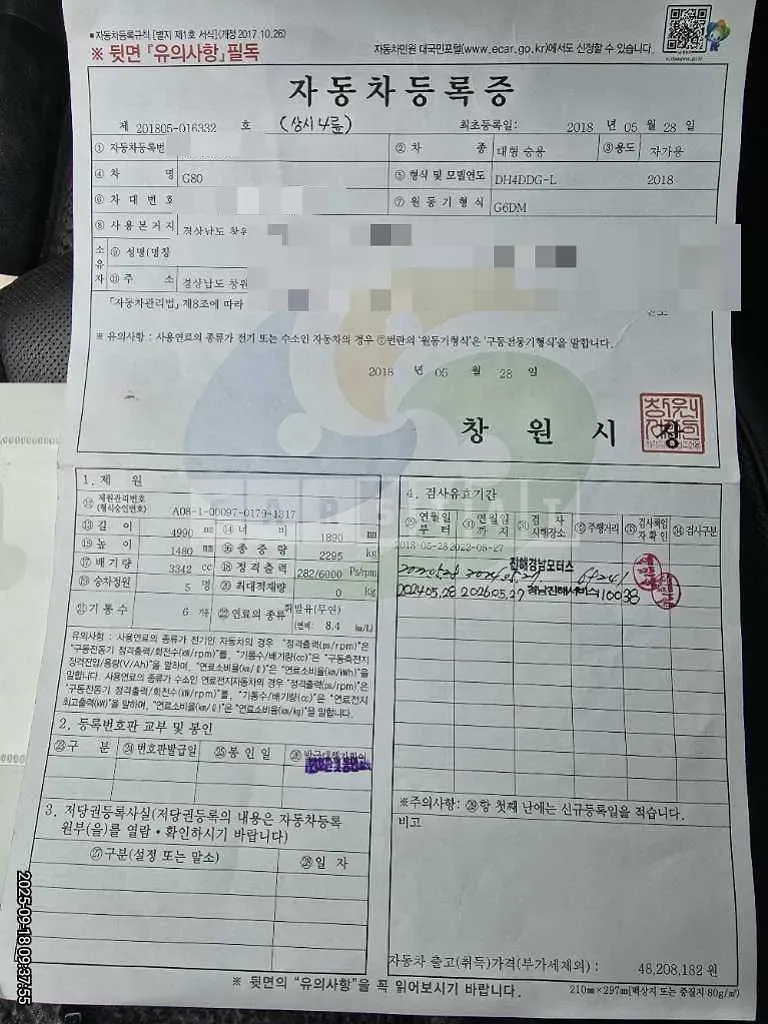 ● 자동차등록규칙 [별지 제1호 서식] (개정 2017.10.26)
※ 뒷면 『유의사항』 필독
자동차민원 대국민포털(www.ecar.go.kr)에서도 신청할 수 있습니다.
자동차등록증
제 201805-016332 호 (상시4륜) 최초등록일: 2018 년 05 월 28 일
① 자동차등록번 ② 차 종 대형 승용 ③ 용도 자가용
④ 차 명 G80 ⑤ 형식 및 모델연도 DH4DDG-L 2018
⑥ 차 대 번 호 ⑦ 원 동 기 형 식 G6DM
⑧ 사 용 본 거 지 경상남도 창원
소유자 ⑨ 성명(명칭
⑪ 주 소 경상남도 창원
「자동차관리법」 제8조에 따라
※ 유의사항 : 사용연료의 종류가 전기 또는 수소인 자동차의 경우 ⑦번란의 '원동기형식'은 '구동전동기형식'을 말합니다.
2018 년 05 월 28 일
창 원 시 장
1. 제 원
⑫ 제원관리번호 (형식승인번호) A08-1-00097-0179-1317
⑬ 길 이 4990 mm ⑭ 너 비 1890 mm
⑮ 높 이 1480 mm ⑯ 총 중 량 2295 kg
⑰ 배 기 량 3342 cc ⑱ 정 격 출 력 282/6000 Ps/rpm
⑲ 승차정원 5 명 ⑳ 최대적재량 0 kg
㉑ 기 통 수 6 기통 ㉒ 연료의 종류 휘발유(무연)
(연비: 8.4 km/L)
유의사항 : 사용연료의 종류가 전기인 자동차의 경우 "정격출력(ps/rpm)"은
"구동전동기 정격출력/회전수(kW/rpm)"를, "기통수/배기량(cc)"은 "구동축전지
정격전압/용량(V/Ah)"을 말하며, "연료소비율(km/ℓ)"은 "연료소비율(km/kWh)"을
말합니다. 사용연료의 종류가 수소인 연료전지자동차의 경우 "정격출력(ps/rpm)"은
"구동전동기 정격출력/회전수(kW/rpm)"를, "기통수/배기량(cc)"은 "연료전지
최고출력(kW)"을 말하며, "연료소비율(km/ℓ)"은 "연료소비율(km/kg)"을 말합니다.
2. 등록번호판 교부 및 봉인
㉓ 구 분 ㉔ 번호판발급일 ㉕ 봉 인 일
3. 저당권등록사실(저당권등록의 내용은 자동차등록
원부(을)를 열람 • 확인하시기 바랍니다)
㉗ 구분(설정 또는 말소) ㉘ 일 자
4. 검사유효기간
㉙ 연월일부터 ㉚ 연월일까지 ㉛ 검 사 시행장소 ㉜ 주행거리 ㉝ 검사책임자확인 ㉞ 검사구분
2018-05-28 2022-05-27
2024.05.27 진해경남모터스 64241
2024.05.28 2026.05.27 경남진해서비스 110038
※주의사항: ㉙항 첫째 난에는 신규등록일을 적습니다.
비고
자동차 출고(취득)가격(부가세제외) : 48,208,182 원
※ 뒷면의 "유의사항"을 꼭 읽어보시기 바랍니다.
210㎜×297㎜[백상지 또는 중질지 80g/㎡]
2025-09-18 09:37:55